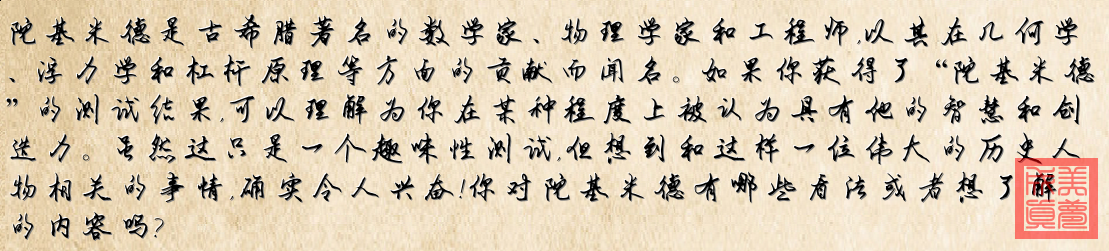 陀基米德是古希腊著名的数学家、物理学家和工程师,以其在几何学
、浮力学和杠杆原理等方面的贡献而闻名。如果你获得了“陀基米德
”的测试结果,可以理解为你在某种程度上被认为具有他的智慧和创
造力。虽然这只是一个趣味性测试,但想到和这样一位伟大的历史人
物相关的事情,确实令人兴奋!你对陀基米德有哪些看法或者想了解
的内容吗?